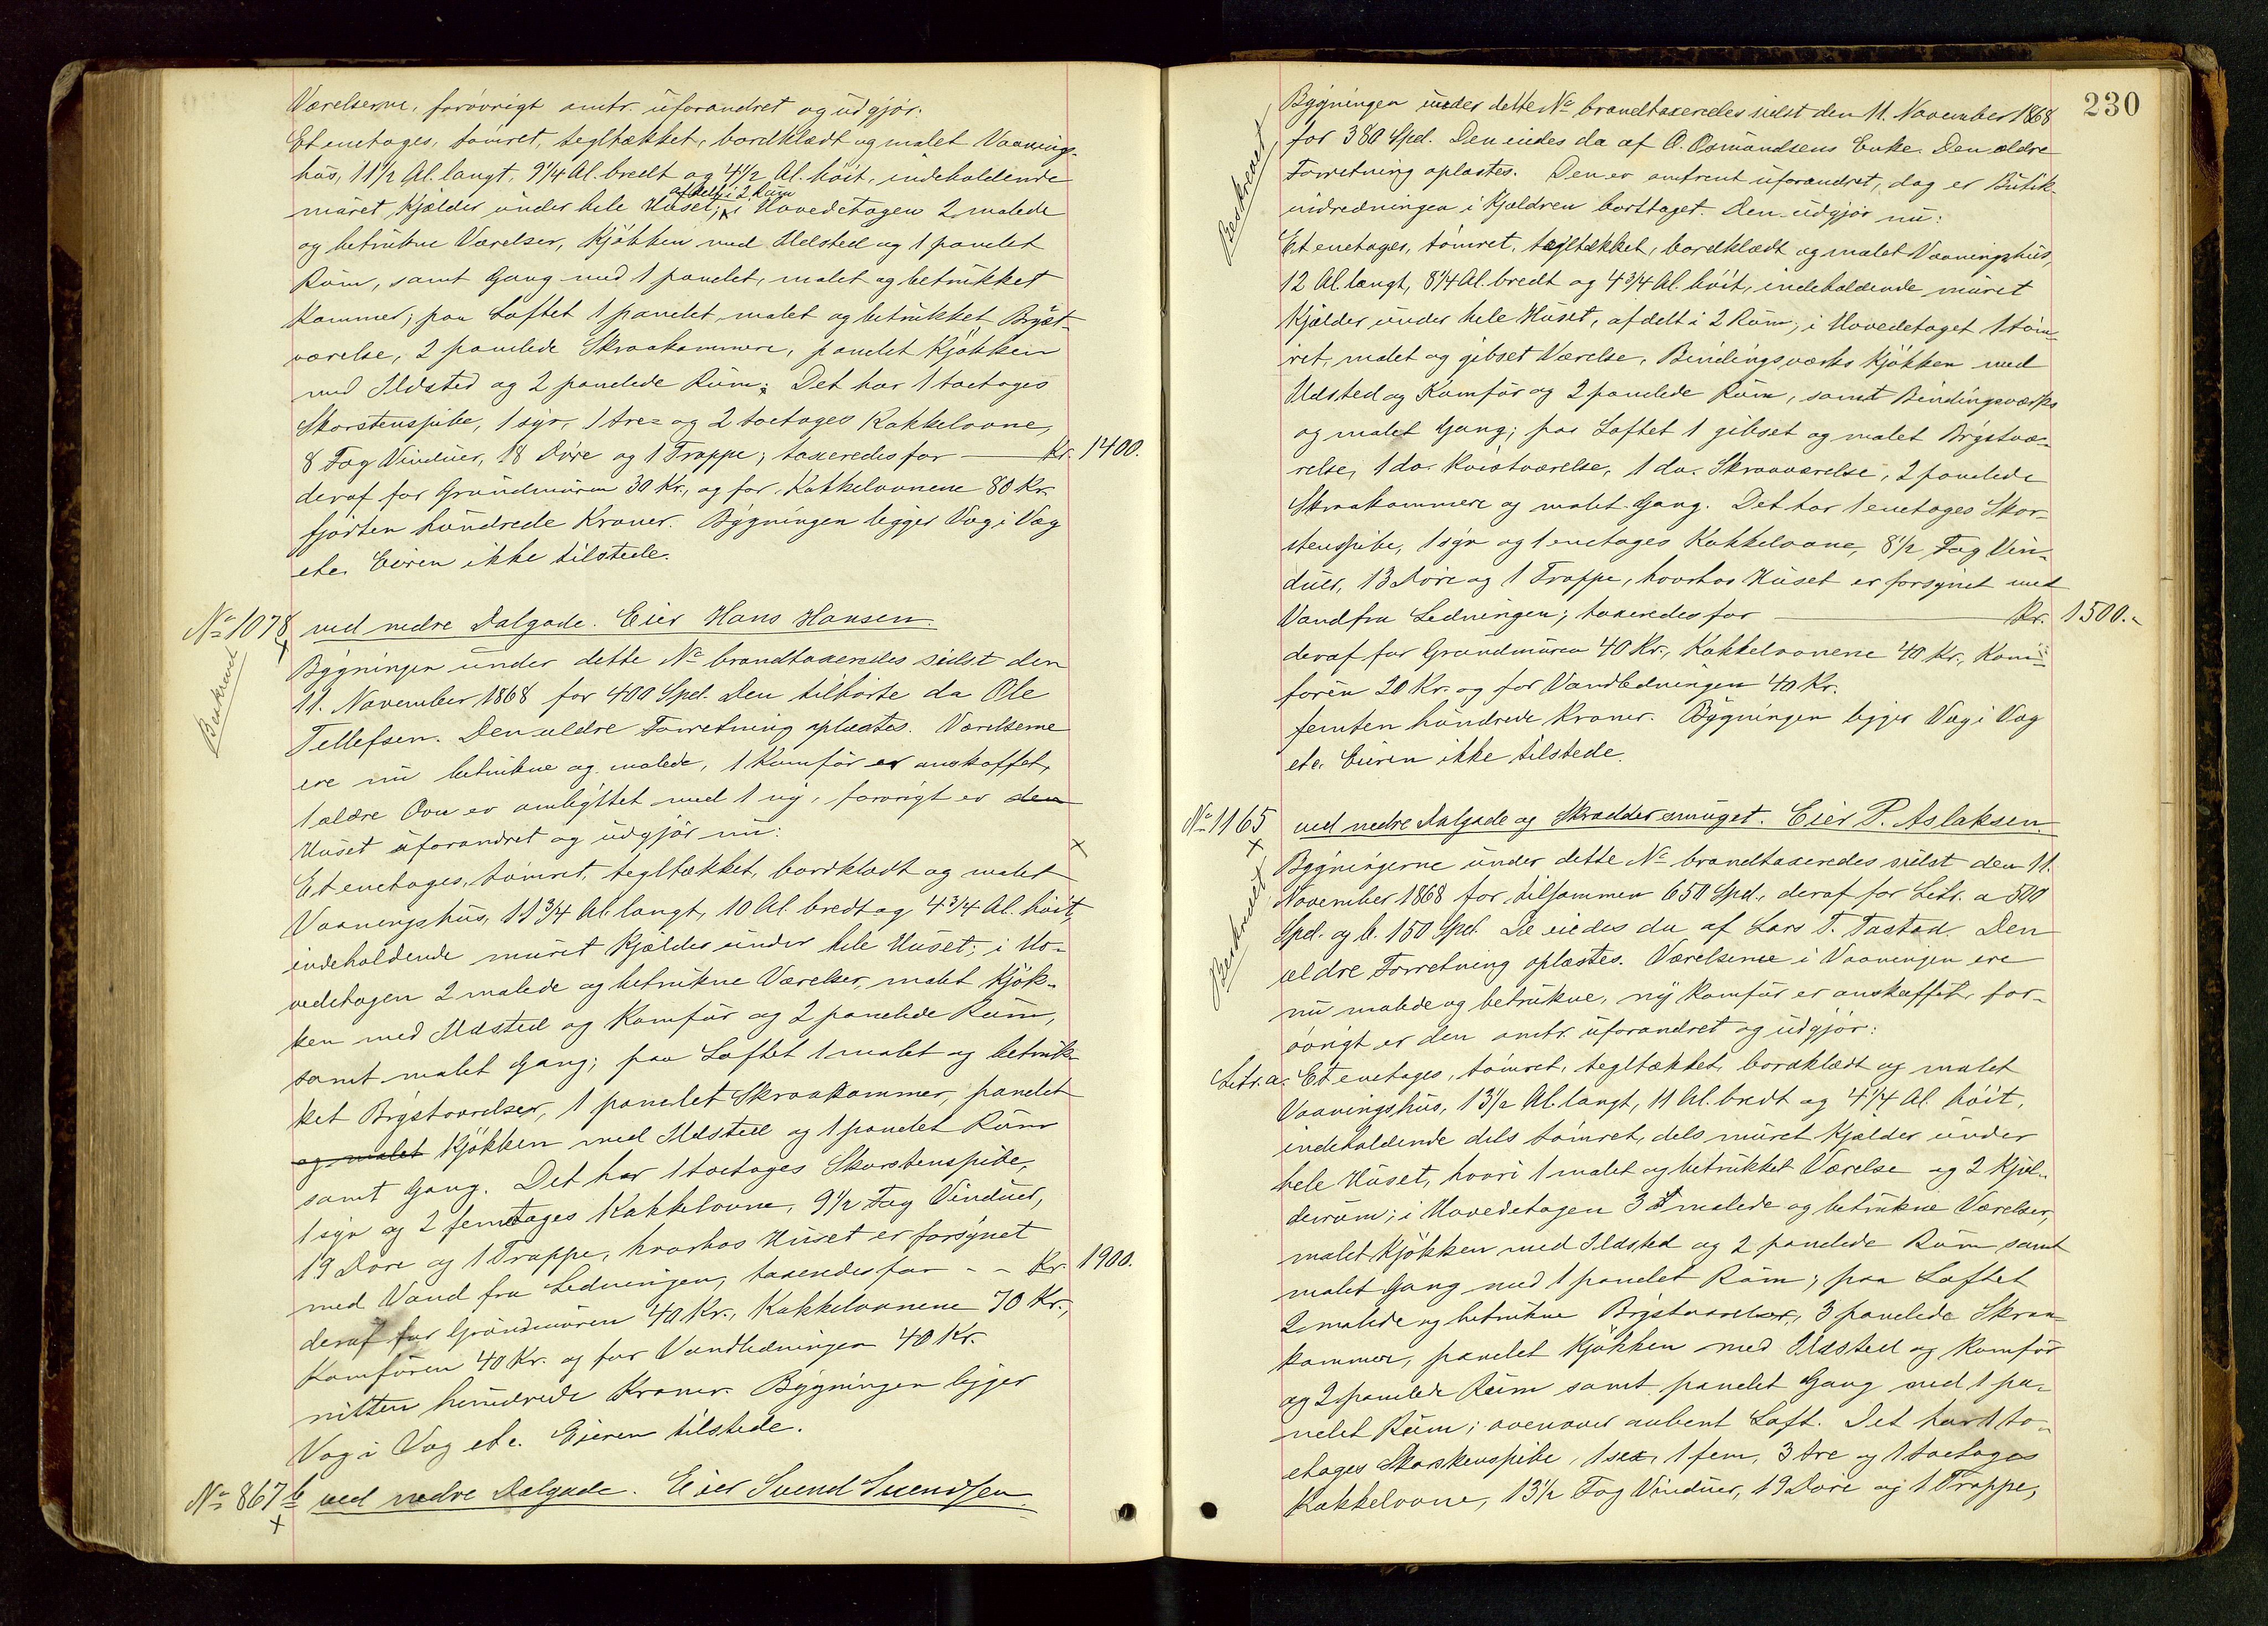 Værelserne, forövrigt omtr. uforandret og udgjör:
Et enetages, tömret, tegltækket, bordklædt og malet Vaanings-
hus, 11 1/2 Al. langt, 9 1/4 Al. bredt og 4 1/2 Al. höit, indeholdende
afdelt i 2 Rum
muret Kjælder under hele Huset; i Hovedetagen 2 malede
og betrukne Værelser, Kjökken med Ildsted og 1 panelet
Rum, samt Gang med 1 panelet, malet og betrukket
Kammer; paa Loftet 1 panelet malet og betrukket Bryst-
værelse, 2 panelede Skraakammere, panelet Kjökken
med Ildsted og 2 panelede Rum. Det har 1 toetages
Skorstenspibe, 1 syv, 1 tre- og 2 toetages Kakkelovne,
8 Fag Vinduer, 18 Döre og 1 Trappe; taxeredes for — Kr. 1400.
deraf for Grundmuren 30 Kr., og for Kakkelovnene 80 Kr.
fjorten hundrede Kroner. Bygningen ligger Væg i Væg
etc. Eieren ikke tilstede.
No 1078 ved nedre Dalgade. Eier Hans Hansen
Beskrevet
Bygningen under dette No brandtaxeredes sidst den
11. November 1868 for 400 Spd. Den tilhörte da Ole
Tellefsen. Den ældre Forretning oplæstes. Værelserne
ere nu betrukne og malede, 1 Komfür er anskaffet,
1 ældre Ovn er ombyttet med 1 ny, forövrigt er den
Huset uforandret og udgjör nu:
Et enetages, tömret, tegltækket, bordklædt og malet
Vaaningshus, 11 3/4 Al. langt, 10 Al. bredt og 4 3/4 Al. höit,
indeholdende muret Kjælder under hele Huset; i Ho-
vedetagen 2 malede og betrukne Værelser, malet Kjök-
ken med Ildsted og Komfür og 2 panelede Rum,
samt malet Gang; paa Loftet 1 malet og betruk-
ket Brystværelse, 1 panelet Skraakammer, panelet
og malet Kjökken med Ildsted og 1 panelet Rum
samt Gang. Det har 1 toetages Skorstenspibe,
1 syv og 2 femetages Kakkelovne, 9 1/2 Fag Vinduer,
19 Döre og 1 Trappe, hvorhos Huset er forsynet
med Vand fra Ledningen; taxeredes for - - Kr. 1900.
deraf for Grundmuren 40 Kr., Kakkelovnene 70 Kr.,
Komfüren 40 Kr. og for Vandledningen 40 Kr.
nitten hundrede Kroner. Bygningen ligger
Væg i Væg etc. Eieren tilstede.
No 867 b ved nedre Dalgade. Eier Svend Svendsen
230
Beskrevet
Bygningen under dette No brandtaxeredes sidst den 11. November 1868
for 380 Spd. Den eiedes da af O. Osmundsens Enke. Den ældre
Forretning oplæstes. Den er omtrent uforandret, dog er Butik-
indredningen i Kjælderen borttaget. Den udgjör nu:
Et enetages, tömret, tegltækket, bordklædt og malet Vaaningshus,
12 Al. langt, 8 1/4 Al. bredt og 4 3/4 Al. höit, indeholdende muret
Kjælder under hele Huset, afdelt i 2 Rum, i Hovedetaget 1 töm-
ret, malet og gibset Værelse, Bindingsværks Kjökken med
Ildsted og Komfür og 2 panelede Rum, samt Bindingsværks
og malet Gang; paa Loftet 1 gibset og malet Brystvæ-
relse, 1 do. Kvistværelse, 1 do. Skraaværelse, 2 panelede
Skraakammere og malet Gang. Det har 1 enetages Skor-
stenspibe, 1 syv og 1 enetages Kakkelovne, 8 1/2 Fag Vin-
duer, 13 Döre og 1 Trappe, hvorhos Huset er forsynet med
Vand fra Ledningen; taxeredes for — Kr. 1500.-
deraf for Grundmuren 40 Kr., Kakkelovnene 40 Kr., Kom-
füren 20 Kr. og for Vandledningen 40 Kr.
femten hundrede Kroner. Bygningen ligger Væg i Væg
etc. Eieren ikke tilstede.
No 1165 ved nedre Dalgade og Skræddersmuget. Eier P. Aslaksen.
Beskrevet
Bygningerne under dette No brandtaxeredes sidst den 11.
November 1868 for tilsammen 650 Spd., deraf for Litr. a 500
Spd. og b. 150 Spd. De eiedes da af Lars T. Tastad. Den
ældre Forretning oplæstes. Værelserne i Vaaningen ere
nu malede og betrukne, ny Komfür er anskaffet, for-
övrigt er den omtr. uforandret og udgjör:
Litr. a. Et enetages, tömret, tegltækket, bordklædt og malet
Vaaningshus, 13 1/2 Al. langt, 11 Al. bredt og 4 1/4 Al. höit,
indeholdende dels tömret, dels muret Kjælder under
hele Huset, hvori 1 malet og betrukket Værelse og 2 Kjæl-
derrum; i Hovedetagen 3 malede og betrukne Værelser,
malet Kjökken med Ildsted og 2 panelede Rum samt
malet Gang med 1 panelet Rum; paa Loftet
2 malede og betrukne Brystværelser, 3 panelede Skraa-
kammer, panelet Kjökken med Ildsted og Komfür
og 2 panelede Rum samt panelet Gang med 1 pa-
nelet Rum; ovenover aabent Loft. Det har 1 to-
etages Skorstenspibe, 1 sex, 1 fem, 3 tre og 1 toetages
Kakkelovne, 13 1/2 Fag Vinduer, 19 Döre og 1 Trappe,